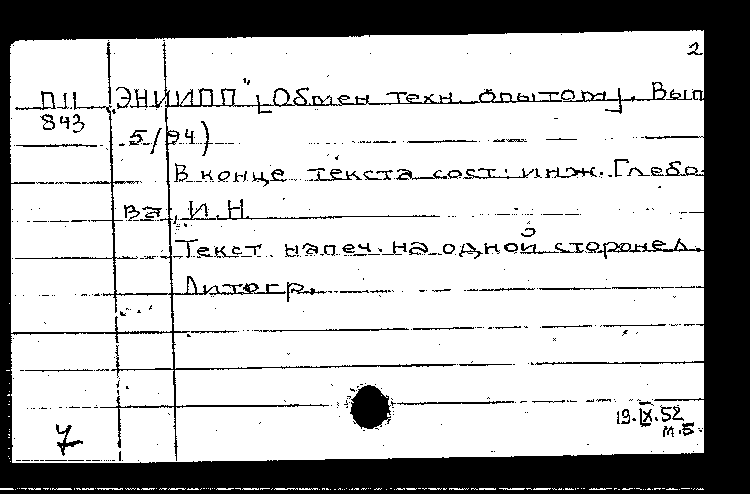 2
П11 „ЭНИИПП" [Обмен техн. опытом]. Вып
843
5/94)
В конце текста сост: инж. Глебо-
ва, И.Н.
Текст напеч. на одной стороне л.
Литогр.
7
19.IX.52
М.Б.